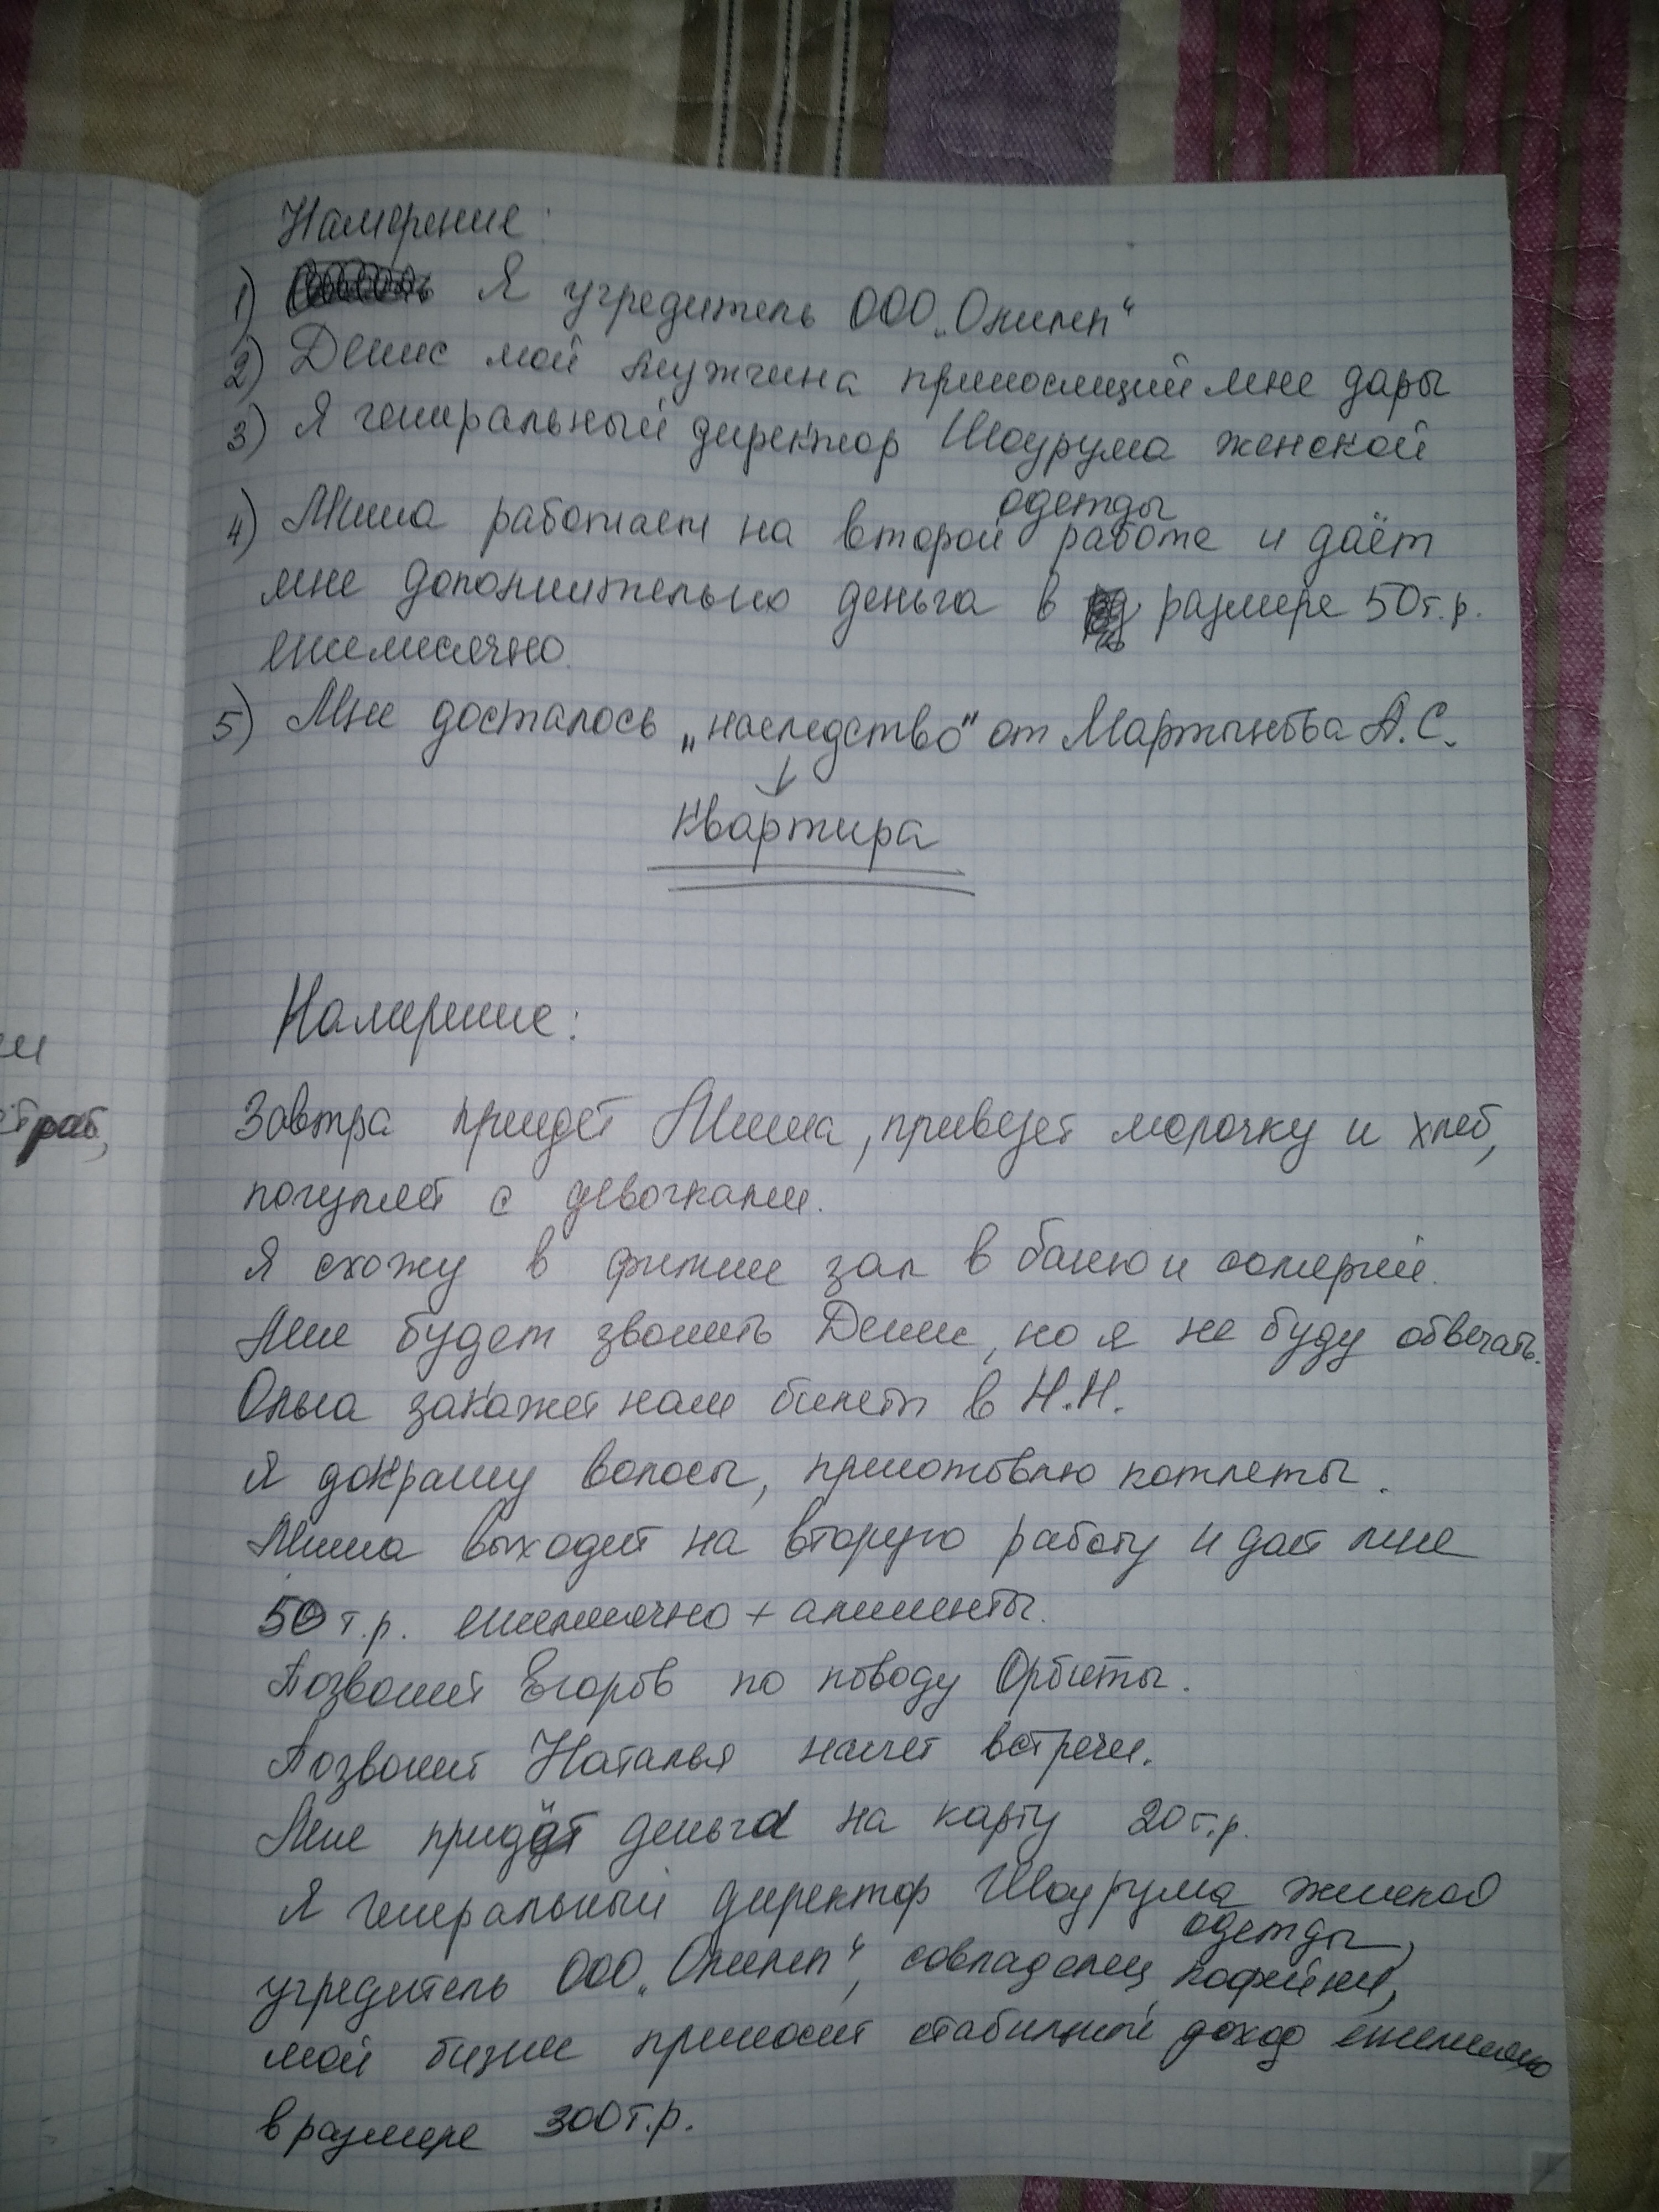 Намерение:
1) Я учредитель ООО „Олилеп“
2) Денис мой мужчина приносящий мне дары
3) Я генеральный директор Шоурума женской
одежды
4) Миша работает на второй работе и даёт
мне дополнительно деньга в размере 50 т.р.
ежемесячно.
5) Мне досталось „наследство" от Мартынова А.С.
↓
Квартира
Намерение:
ем
раб,
Завтра придет Миша, привезет морочку и хлеб,
погуляет с девочками.
Я схожу в фитнес зал в баню и солярий.
Мне будет звонить Денис, но я не буду отвечать.
Ольга закажет нам билеты в Н.Н.
Я докрашу волосы, приготовлю котлеты.
Миша выходит на вторую работу и дает мне
50 т.р. ежемесячно + алименты.
Позвонит Егоров по поводу Орбиты.
Позвонит Наталья насчет встречи.
Мне придёт деньга на карту 20 т.р.
Я генеральный директор Шоурума женской
одежды,
учредитель ООО „Олилеп“, совладелец кофейни,
мой бизнес приносит стабильный доход ежемесячно
в размере 300 т.р.